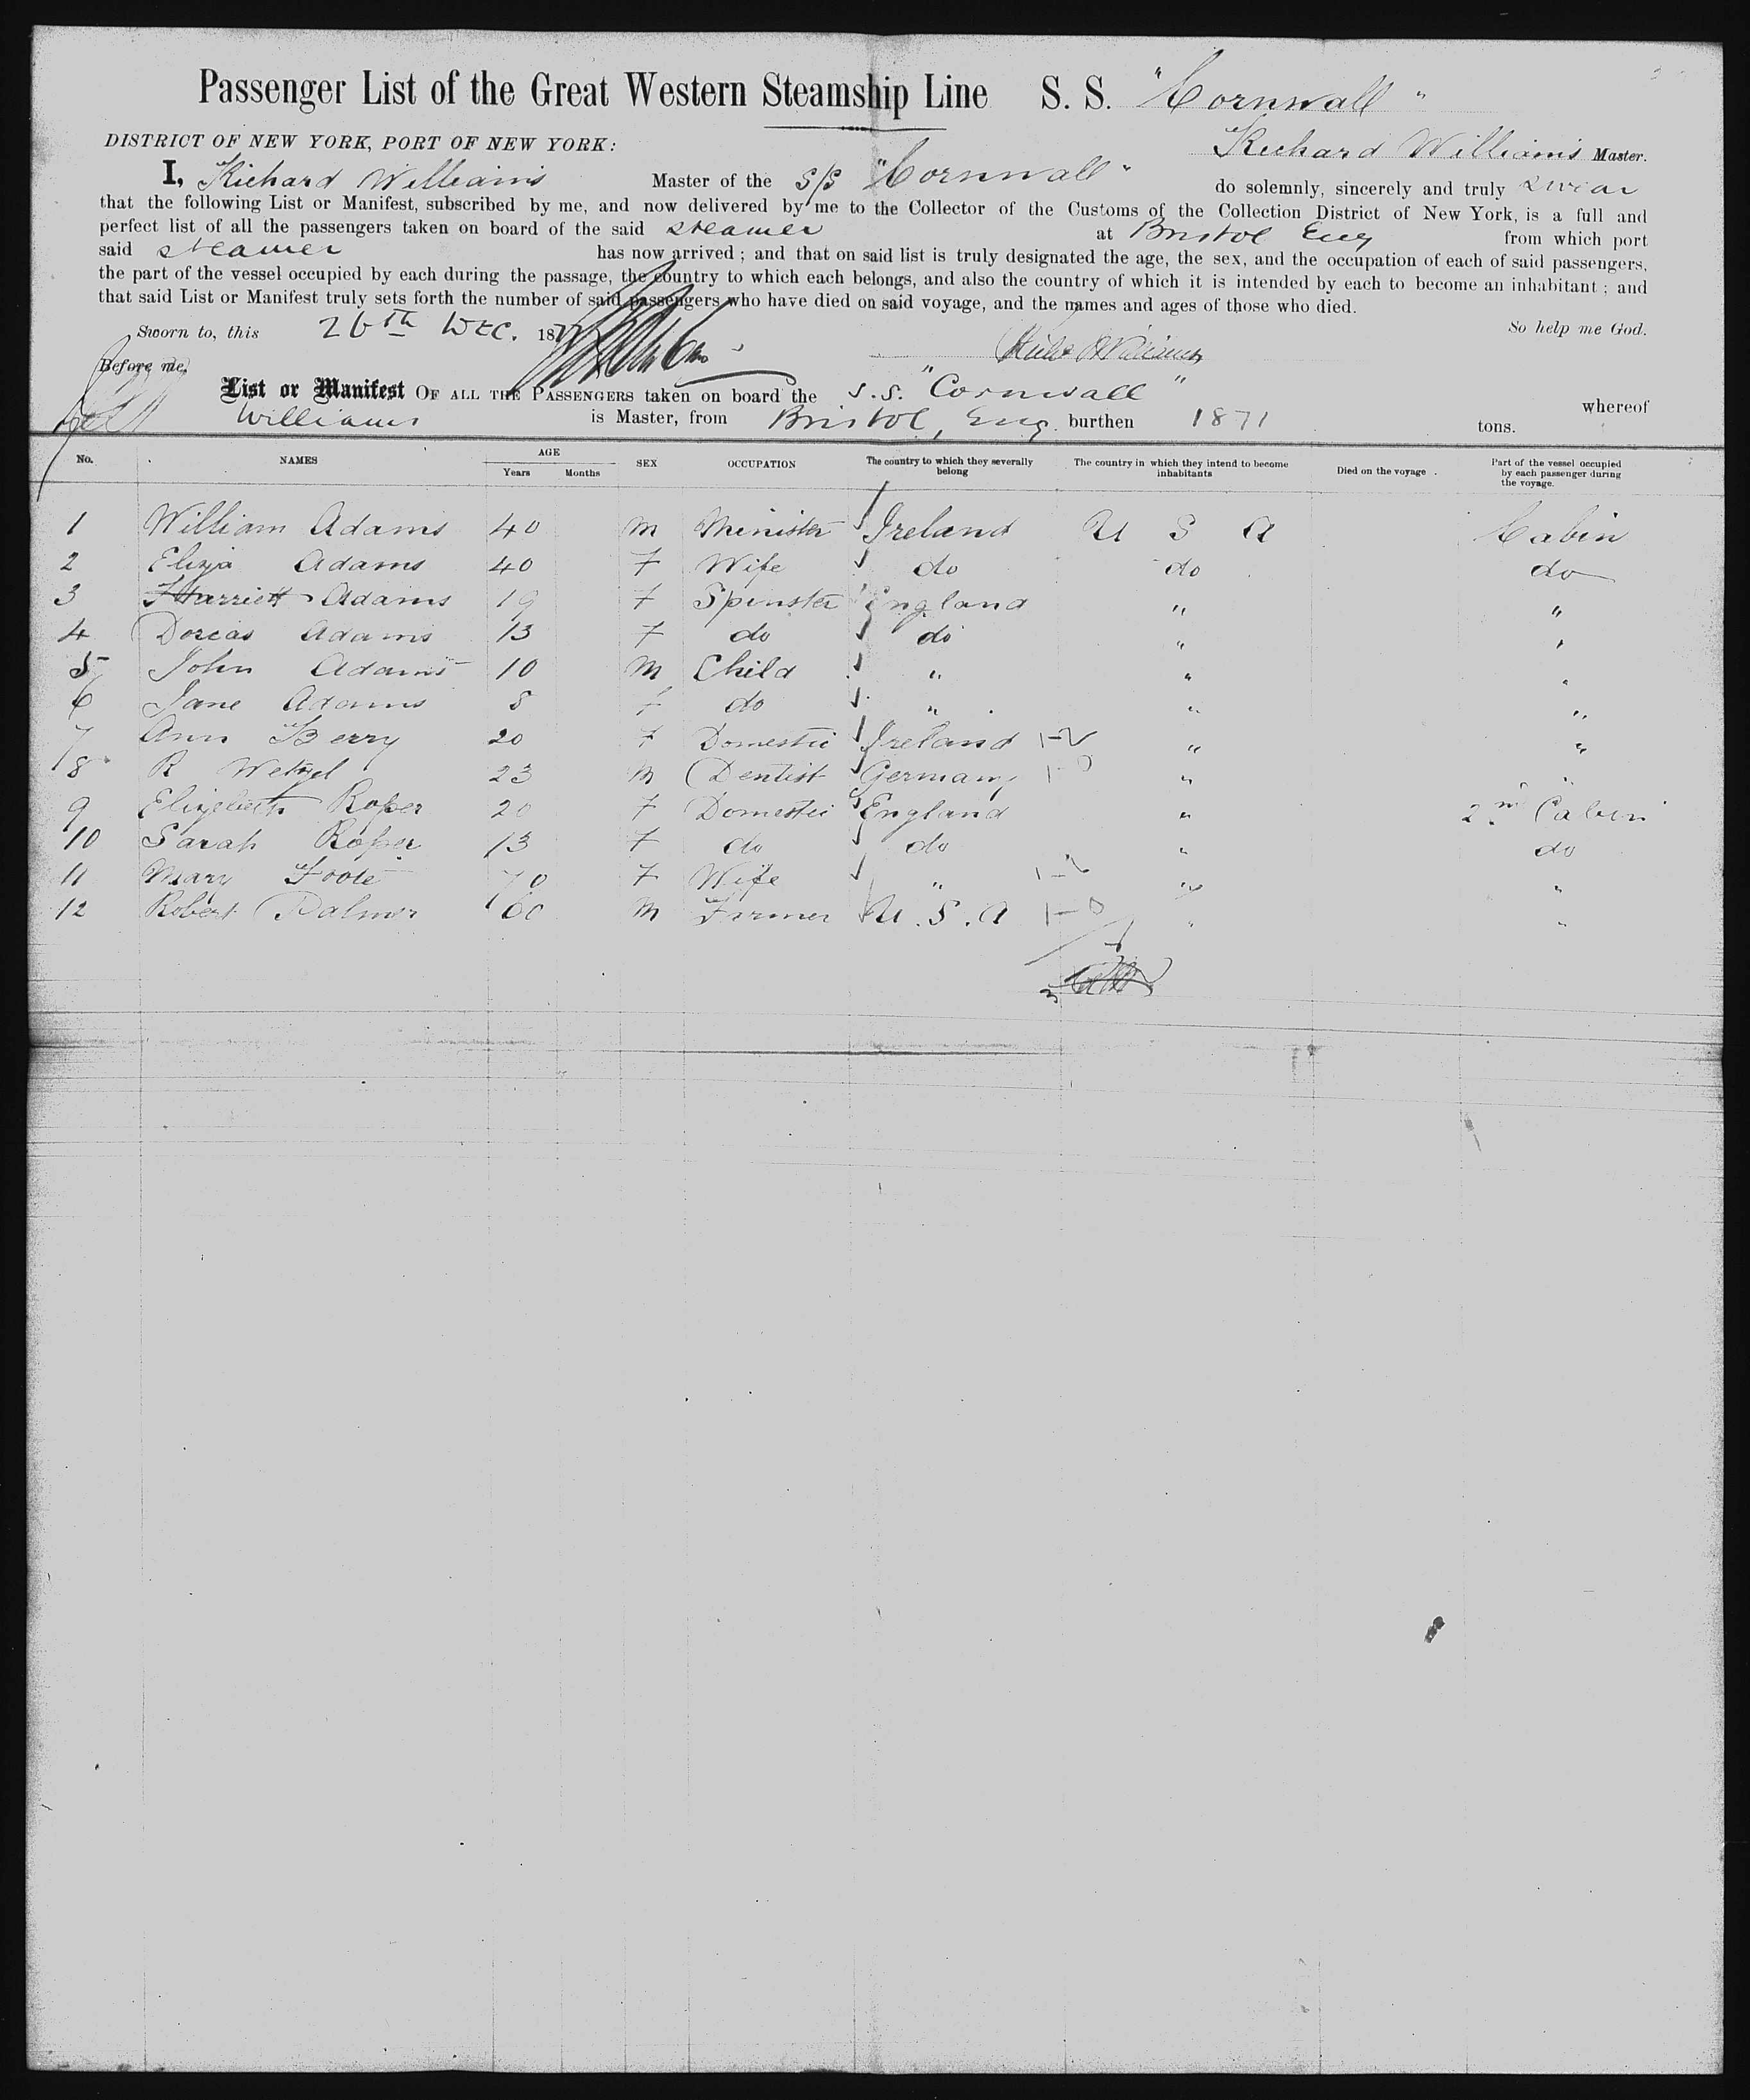 Passenger List of the Great Western Steamship Line S. S. "Cornwall"
DISTRICT OF NEW YORK, PORT OF NEW YORK:
Richard Williams Master.
I, Richard Williams Master of the S/S "Cornwall" do solemnly, sincerely and truly swear
that the following List or Manifest, subscribed by me, and now delivered by me to the Collector of the Customs of the Collection District of New York, is a full and
perfect list of all the passengers taken on board of the said steamer at Bristol Eng from which port
said steamer has now arrived; and that on said list is truly designated the age, the sex, and the occupation of each of said passengers,
the part of the vessel occupied by each during the passage, the country to which each belongs, and also the country of which it is intended by each to become an inhabitant; and
that said List or Manifest truly sets forth the number of said passengers who have died on said voyage, and the names and ages of those who died.
So help me God.
Sworn to, this 26th Dec. 187
Before me,
List or Manifest OF ALL THE PASSENGERS taken on board the S.S. "Cornwall" whereof
Williams is Master, from Bristol, Eng. burthen 1871 tons.
No. NAMES AGE Years Months SEX OCCUPATION The country to which they severally belong The country in which they intend to become inhabitants Died on the voyage. Part of the vessel occupied by each passenger during the voyage.
1 William Adams 40 M Minister Ireland U S A Cabin
2 Eliza Adams 40 F Wife do do do
3 Harriett Adams 19 F Spinster England " "
4 Dorcas Adams 13 F do do " "
5 John Adams 10 M Child " " "
6 Jane Adams 8 F do " " "
7 Ann Berry 20 F Domestic Ireland " "
8 R Wetzel 23 M Dentist Germany " "
9 Elizabeth Roper 20 F Domestic England " 2nd Cabin
10 Sarah Roper 13 F do do " do
11 Mary Foote 70 F Wife " " "
12 Robert Palmer 60 M Farmer U.S.A " "